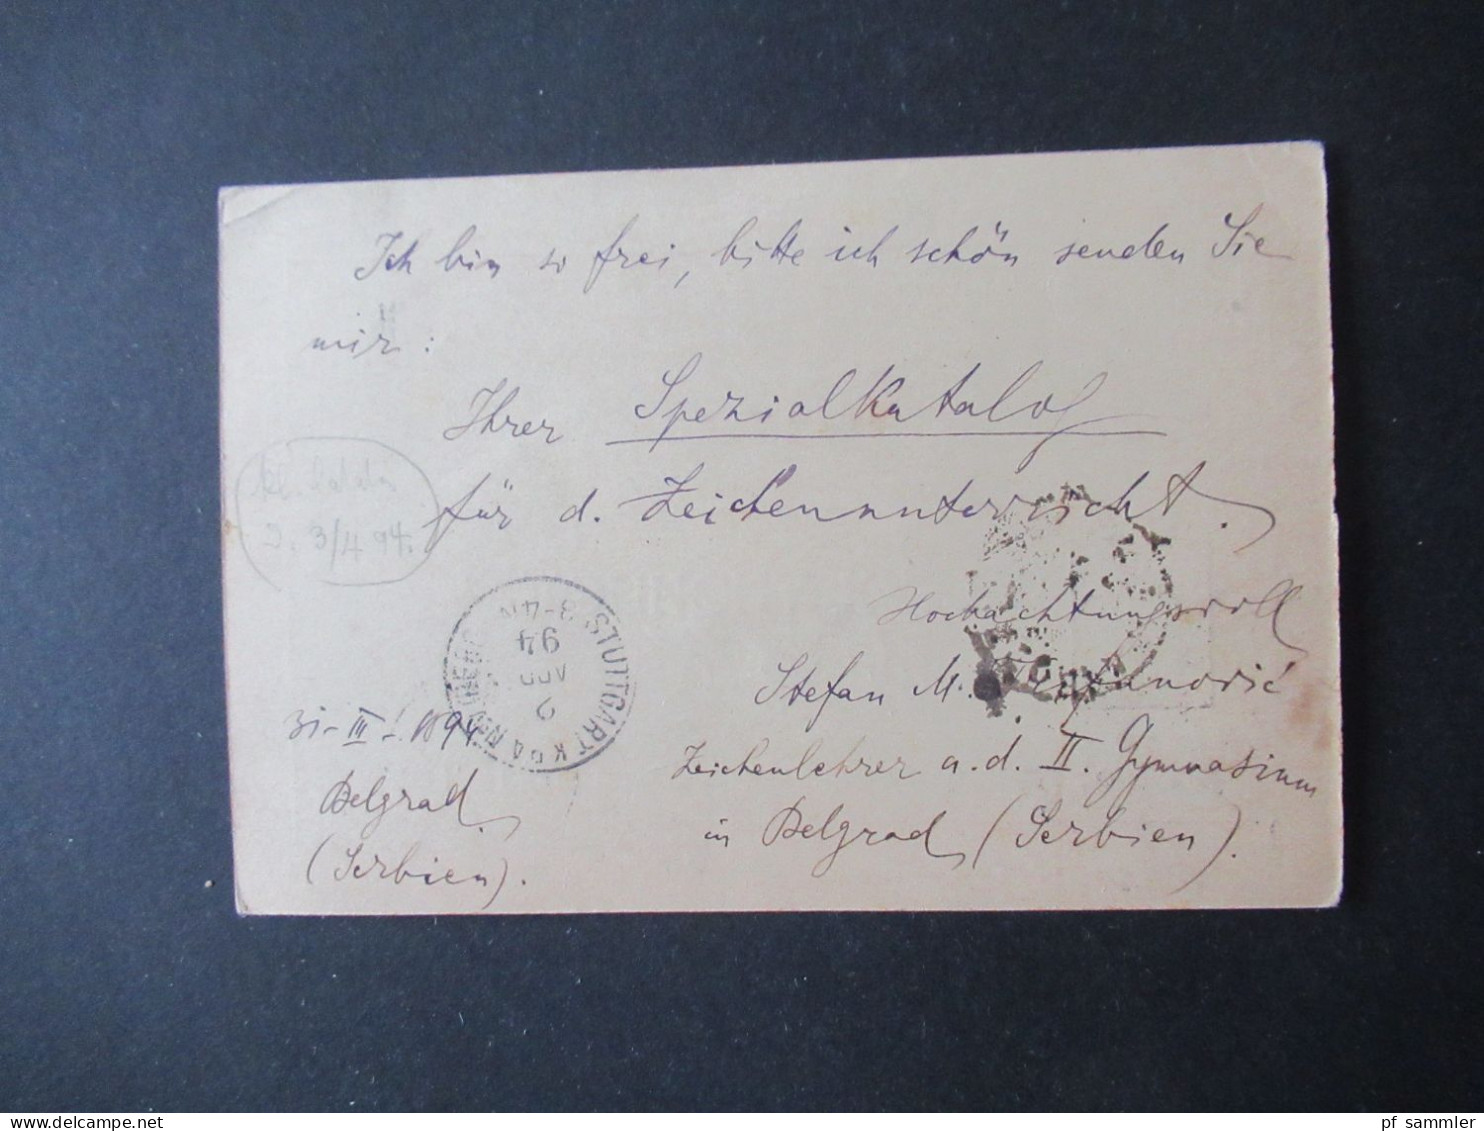 Ich bin so frei, bitte ich schön senden Sie
mir:
Ihrer Spezialkatalog
für d. Zeichenunterricht.
3/4 94.
Hochachtungsvoll
Stefan M.
Zeichenlehrer a. d. II. Gymnasium
in Belgrad (Serbien).
31-III-1894
Belgrad
(Serbien).
STUTTGART
2
APR
94
pf sammler